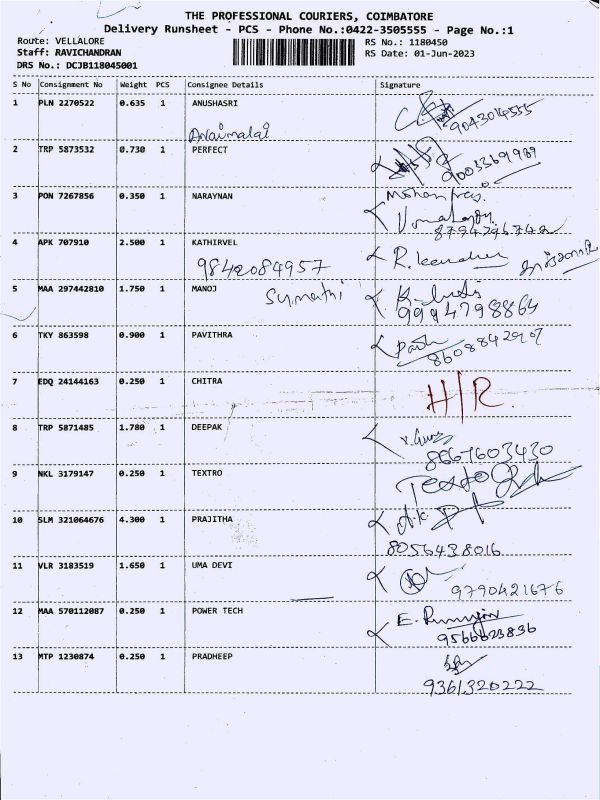 THE PROFESSIONAL COURIERS, COIMBATORE
Delivery Runsheet - PCS - Phone No.:0422-3505555 - Page No.:1
Route: VELLALORE
RS No.: 1180450
Staff: RAVICHANDRAN
RS Date: 01-Jun-2023
DRS No.: DCJB118045001
S No Consignment No Weight PCS Consignee Details Signature
1 PLN 2270522 0.635 1 ANUSHASRI
9043014555
Anaimalai
2 TRP 5873532 0.730 1 PERFECT
9003369989
3 PON 7267856 0.350 1 NARAYNAN
8794796742
4 APK 707910 2.500 1 KATHIRVEL
9842084957
5 MAA 297442810 1.750 1 MANOJ
Sumathi
9994798864
6 TKY 863598 0.900 1 PAVITHRA
8608842907
7 EDQ 24144163 0.250 1 CHITRA
H/R.
8 TRP 5871485 1.780 1 DEEPAK
8667603430
9 NKL 3179147 0.250 1 TEXTRO
10 SLM 321064676 4.300 1 PRAJITHA
8056438016
11 VLR 3183519 1.650 1 UMA DEVI
9790421676
12 MAA 570112087 0.250 1 POWER TECH
9566623836
13 MTP 1230874 0.250 1 PRADHEEP
9361320222